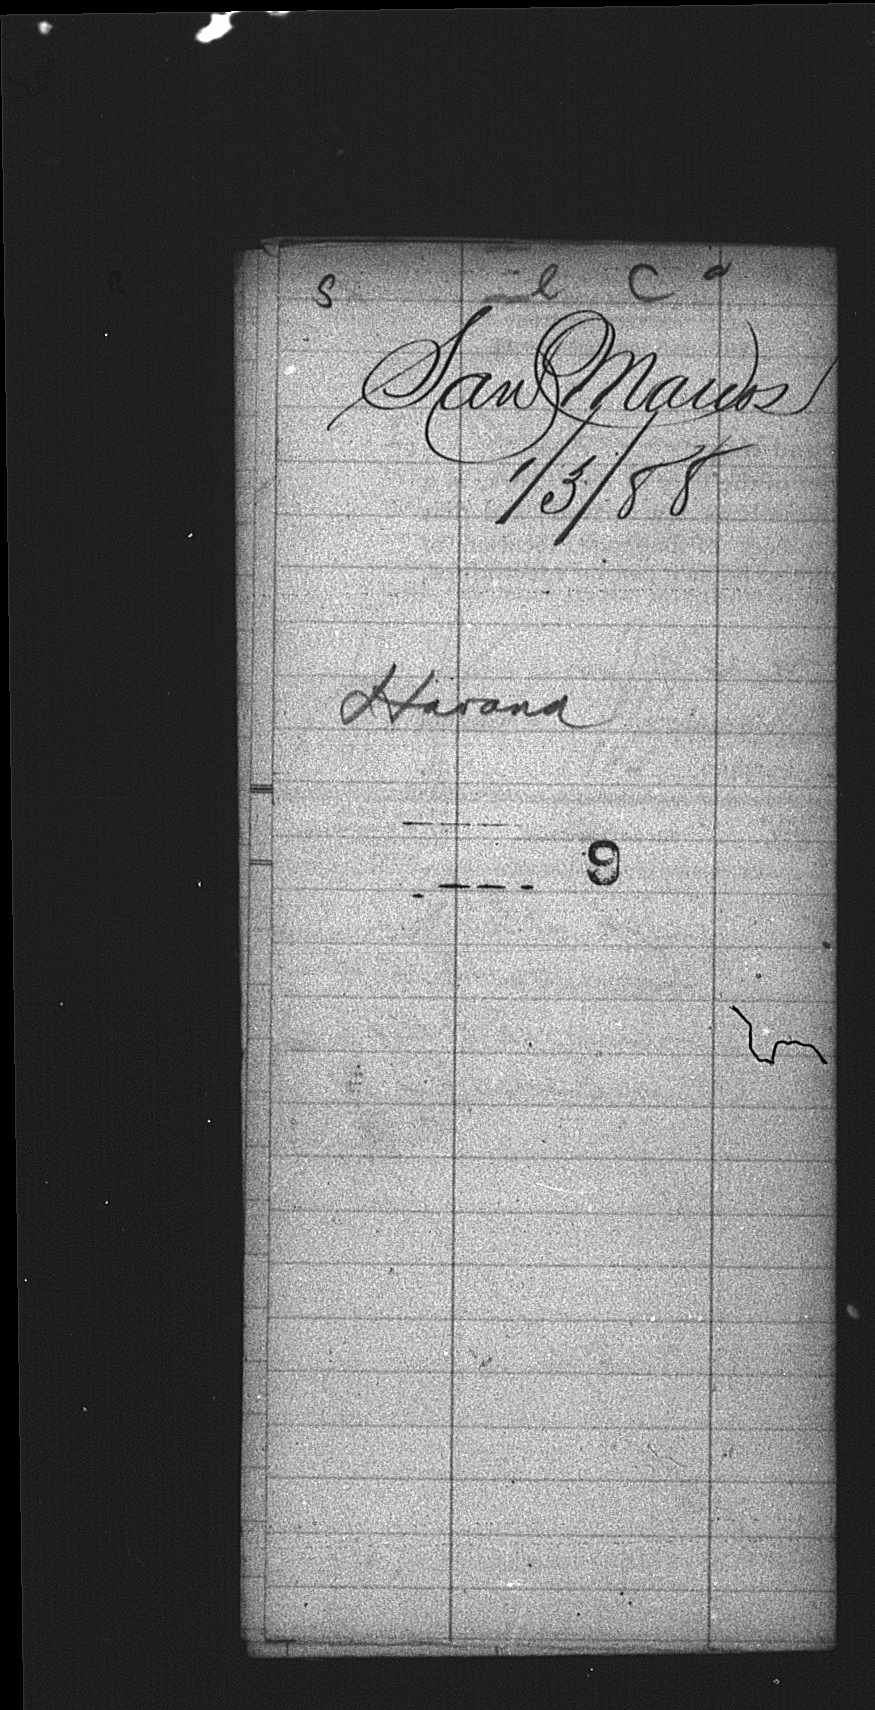 S l C a
San Marcos
1/3/88
Havana
9